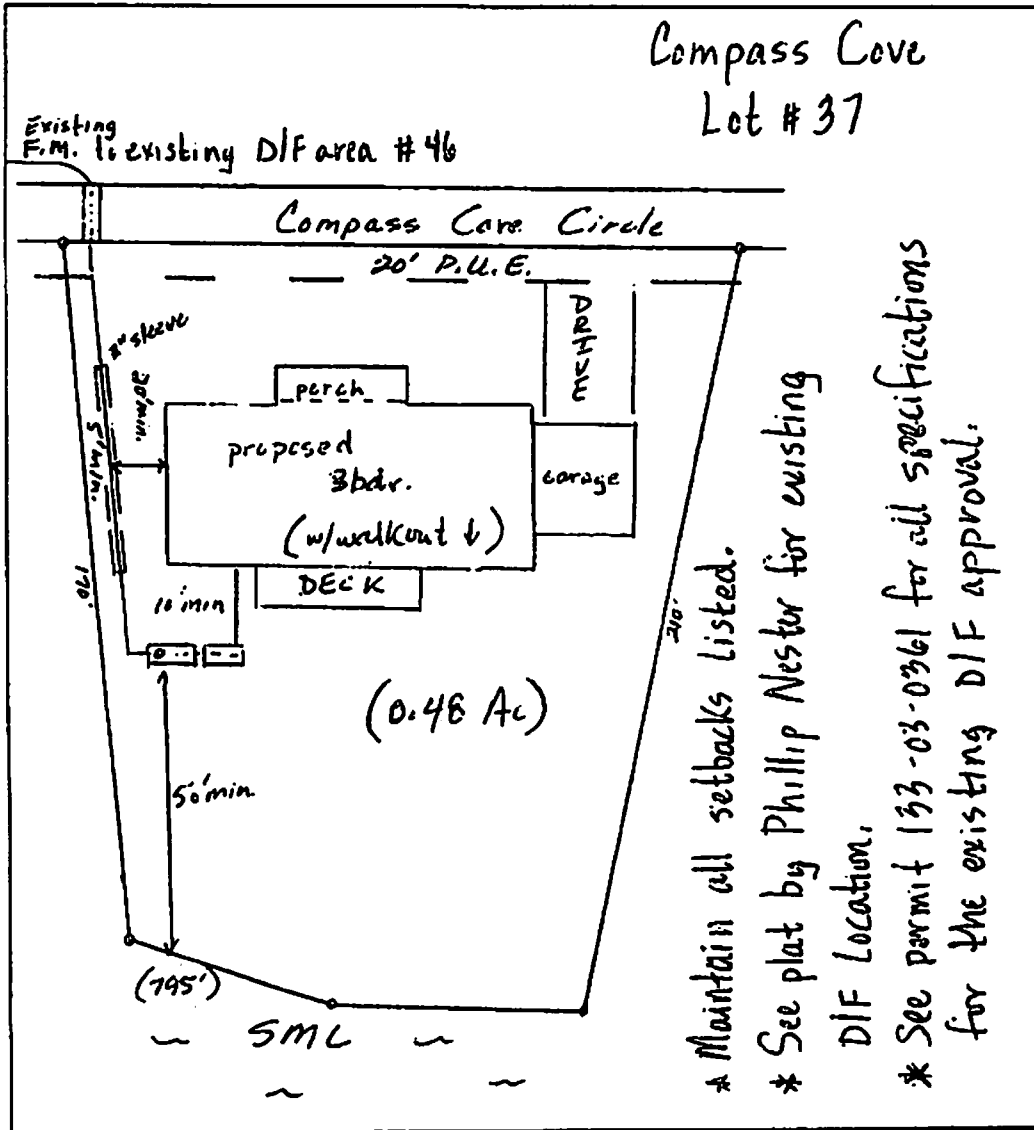 Compass Cove
Lot # 37
Existing
F.M. to existing D/F area # 46
Compass Cove Circle
20' P.U.E.
DRIVE
4" sleeve
20' min.
5' min.
porch
proposed
3 bdr.
(w/walkout ↓)
Garage
DECK
10' min
170'
210'
(0.48 Ac)
50' min
(795')
SML
* Maintain all setbacks listed.
* See plat by Phillip Nester for existing
D/F Location.
* See permit 133-03-0361 for all specifications
for the existing D/F approval.